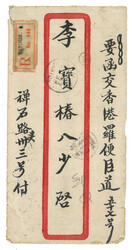 要函交香港羅便臣道五十七号
李寶椿八少啓
禅石路卅三号付